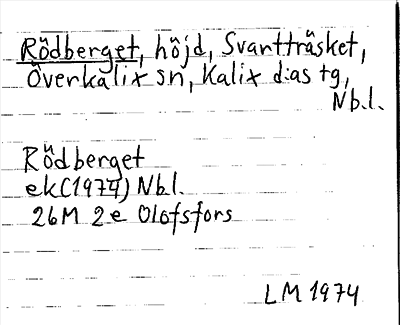 Rödberget, höjd, Svartträsket,
Överkalix sn, Kalix d:as tg,
Nb.l.
Rödberget
ek(1974) Nb.l.
26M 2e Olofsfors
LM 1974